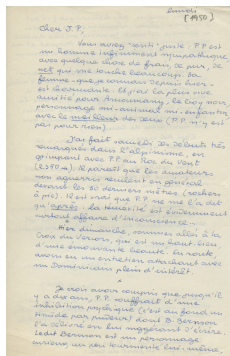 lundi
[1950]
Cher J.P.
Vous aviez "senti" juste. P.P. est
un homme infiniment sympathique,
avec quelque chose de franc, de pur, de
net qui me touche beaucoup. Sa
femme, que je connais depuis hier,
est charmante. Et j'ai la plus vive
amitié pour
personnage mi-animal mi-enfantin,
avec le meilleur des deux (P.P. n'y est
pas pour rien).
J'ai fait samedi des débuts très
remarqués dans l'alpinisme, en
grimpant avec P.P. au Roc du Vent
(2.360 m). Il paraît que les amateurs
non aguerris reculent en général
devant les 50 derniers mètres (rochers
à pic). Il est vrai que P.P. ne me l'a dit
qu'après. La témérité est évidemment
surtout affaire d'inconscience.
Hier dimanche, sommes allés à la
Croix du Vernon, qui est un haut-lieu,
d'une émouvante beauté. En route,
avons eu un entretien attachant avec
un Dominicain plein d'intérêt.
Je crois avoir compris que jusqu'il
y a dix ans, P.P. souffrait d'une
inhibition psychique (c'est au fond un
timide par pudeur) dont B.
l'a délivré en lui suggérant d'écrire.
Ledit est un personnage
curieux, un peu tourmenté lui-même,